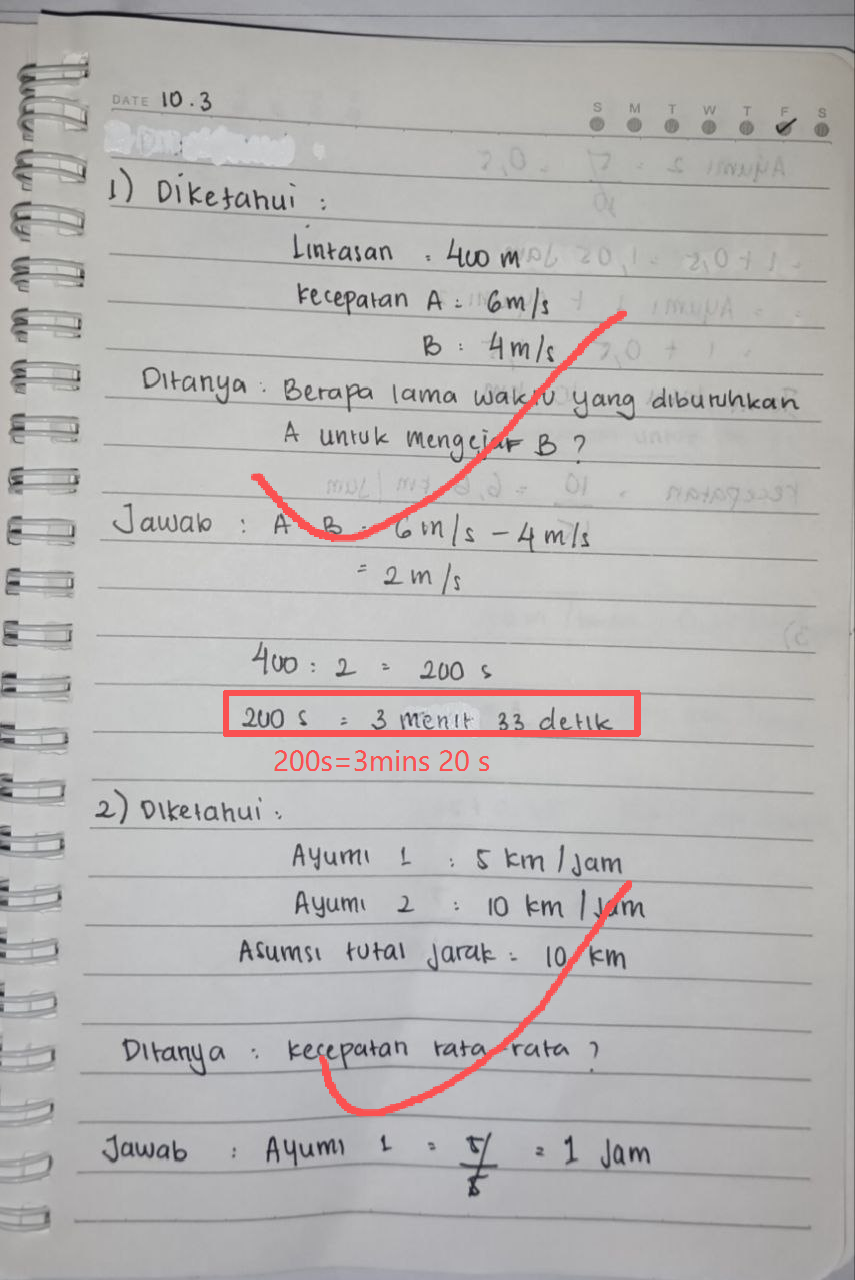 DATE 10.3
S M T W T F S
1) Diketahui :
Lintasan = 400 m
Kecepatan A = 6 m/s
B : 4 m/s
Ditanya : Berapa lama waktu yang dibutuhkan
A untuk mengejar B ?
Jawab : A B = 6 m/s - 4 m/s
= 2 m/s
400 : 2 = 200 s
200 s = 3 menit 33 detik
200s=3mins 20 s
2) Diketahui :
Ayumi 1 : 5 km / Jam
Ayumi 2 : 10 km / Jam
Asumsi total jarak = 10 km
Ditanya : Kecepatan rata-rata ?
Jawab : Ayumi 1 = 5/5 = 1 Jam